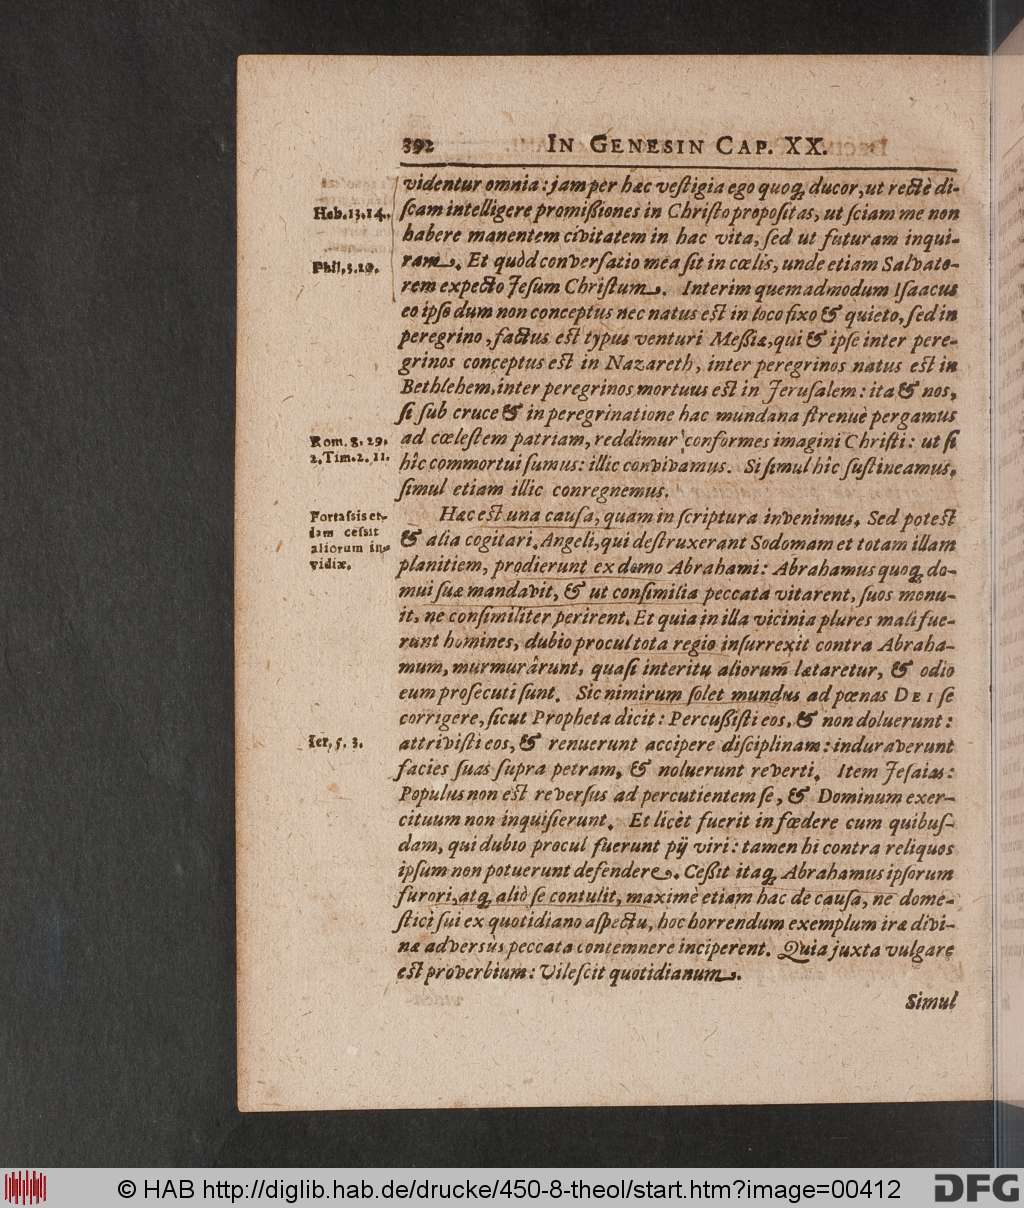 392 IN GENESIN CAP. XX.
videntur omnia: jam per hæc veſtigia ego quoq; ducor, ut rectè di-
Heb. 13. 14. ſcam intelligere promißiones in Chriſto propoſitas, ut ſciam me non
habere manentem civitatem in hac vita, ſed ut futuram inqui-
Phil. 3. 20. ram. Et quòd converſatio mea ſit in cœlis, unde etiam Salvato-
rem expecto Jeſum Chriſtum. Interim quemadmodum Iſaacus
eo ipſo dum non conceptus nec natus eſt in loco fixo & quieto, ſed in
peregrino, factus eſt typus venturi Meßiæ, qui & ipſe inter pere-
grinos conceptus eſt in Nazareth, inter peregrinos natus eſt in
Bethlehem, inter peregrinos mortuus eſt in Jeruſalem: ita & nos,
ſi ſub cruce & in peregrinatione hac mundana ſtrenuè pergamus
Rom. 8. 29. ad cœleſtem patriam, reddimur conformes imagini Chriſti: ut ſi
2. Tim. 2. 11. hîc commortui ſumus: illic convivamus. Si ſimul hîc ſuſtineamus,
ſimul etiam illic conregnemus.
Fortaſsis et- Hæc eſt una cauſa, quam in ſcriptura invenimus. Sed poteſt
iam ceſsit & alia cogitari. Angeli, qui deſtruxerant Sodomam et totam illam
aliorum in-
vidiæ. planitiem, prodierunt ex domo Abrahami: Abrahamus quoq; do-
mui ſuæ mandavit, & ut conſimilia peccata vitarent, ſuos monu-
it, ne conſimiliter perirent. Et quia in illa vicinia plures mali fue-
runt homines, dubio procul tota regio inſurrexit contra Abraha-
mum, murmurârunt, quaſi interitu aliorum lætaretur, & odio
eum proſecuti ſunt. Sic nimirum ſolet mundus ad pœnas DEI ſe
corrigere, ſicut Propheta dicit: Percußiſti eos, & non doluerunt:
Ier. 5. 3. attriviſti eos, & renuerunt accipere diſciplinam: induraverunt
facies ſuas ſupra petram, & noluerunt reverti. Item Jeſaias:
Populus non eſt reverſus ad percutientem ſe, & Dominum exer-
cituum non inquiſierunt. Et licèt fuerit in fœdere cum quibuſ-
dam, qui dubio procul fuerunt pij viri: tamen hi contra reliquos
ipſum non potuerunt defendere. Ceßit itaq; Abrahamus ipſorum
furori, atq; aliò ſe contulit, maximè etiam hac de cauſa, ne dome-
ſtici ſui ex quotidiano aſpectu, hoc horrendum exemplum iræ divi-
næ adversùs peccata contemnere inciperent. Quia juxta vulgare
eſt proverbium: Vileſcit quotidianum.
Simul
© HAB http://diglib.hab.de/drucke/450-8-theol/start.htm?image=00412
DFG